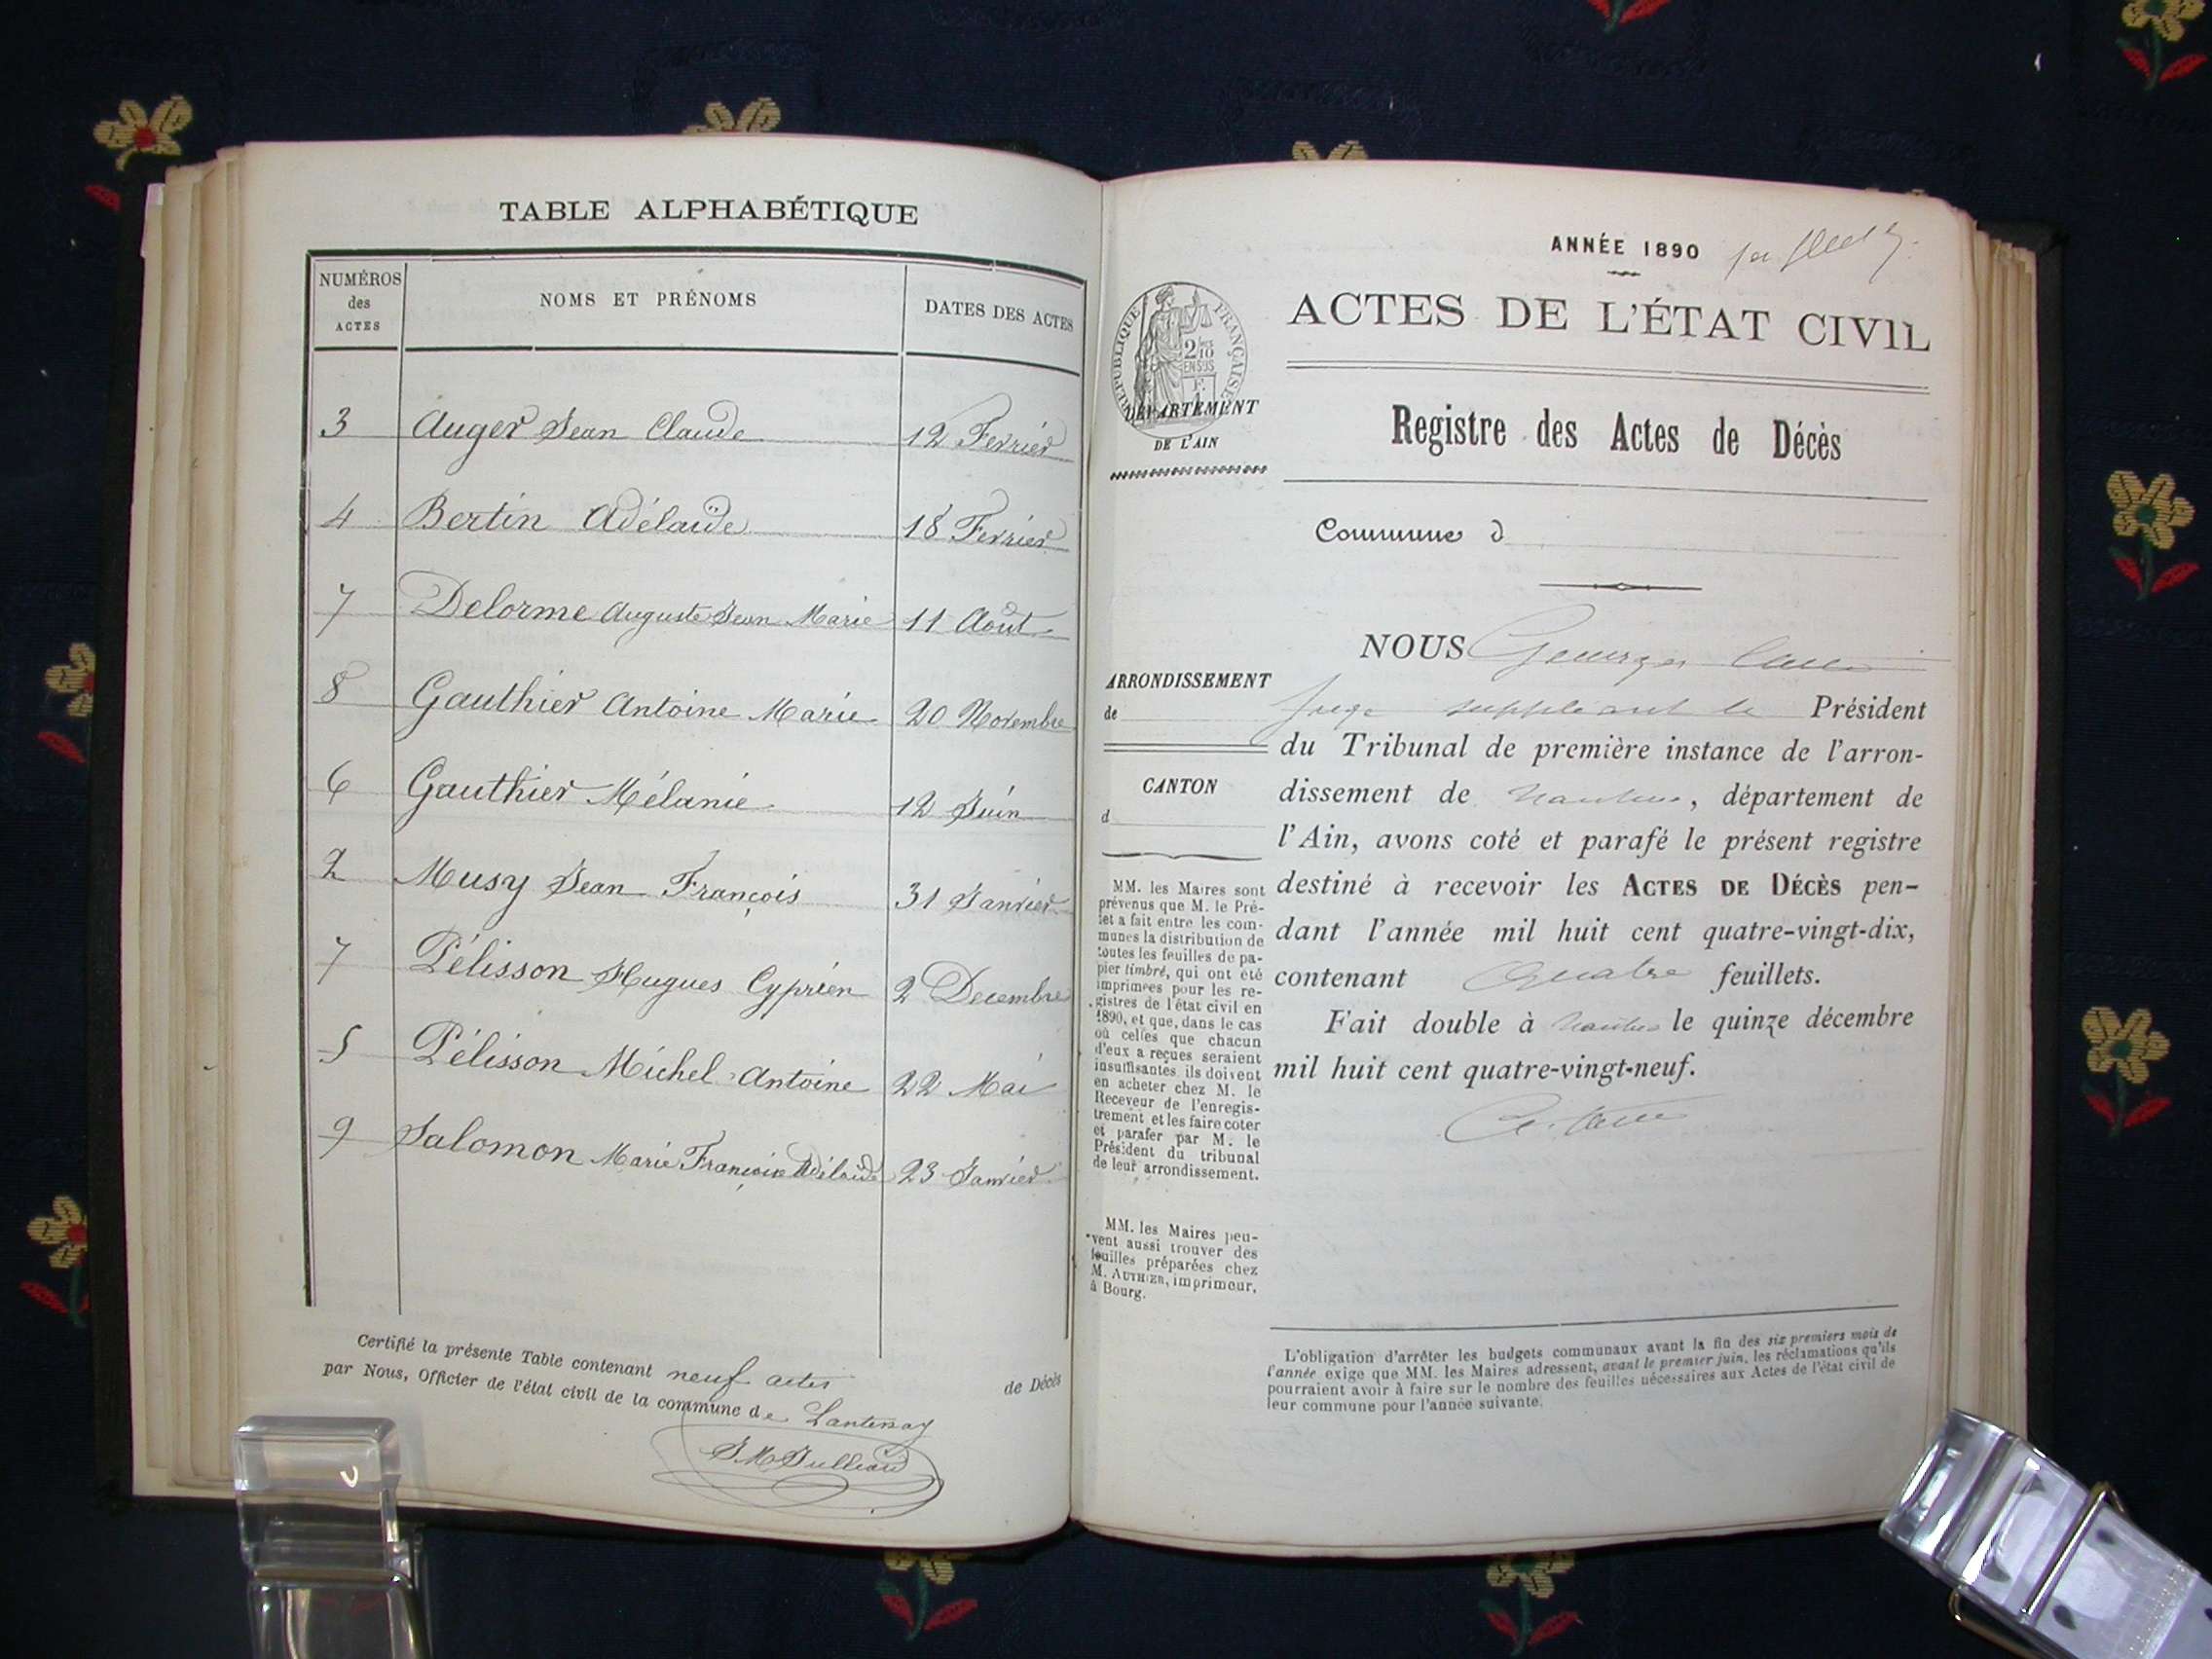 TABLE ALPHABÉTIQUE
NUMÉROS des ACTES NOMS ET PRÉNOMS DATES DES ACTES
3 Auger Jean Claude 12 Fevrier
4 Bertin Adélaïde 18 Fevrier
7 Delorme Auguste Jean Marie 11 Aout
8 Gauthier Antoine Marie 20 Novembre
6 Gauthier Mélanie 12 Juin
2 Musy Jean François 31 Janvier
7 Pélisson Hugues Cyprien 2 Decembre
5 Pélisson Michel Antoine 22 Mai
9 Salomon Marie Françoise Adélaïde 23 Janvier
Certifié la présente Table contenant neuf actes de Décès
par Nous, Officier de l'état civil de la commune de Lantenay
J M Julliard
ANNÉE 1890
ACTES DE L'ÉTAT CIVIL
RÉPUBLIQUE FRANÇAISE
2/10 EN SUS
DÉPARTEMENT
DE L'AIN
Registre des Actes de Décès
Commune d
ARRONDISSEMENT
de
CANTON
d
MM. les Maires sont
prévenus que M. le Pré-
fet a fait entre les com-
munes la distribution de
toutes les feuilles de pa-
pier timbré, qui ont été
imprimées pour les re-
gistres de l'état civil en
1890, et que, dans le cas
où celles que chacun
d'eux a reçues seraient
insuffisantes ils doivent
en acheter chez M. le
Receveur de l'enregis-
trement et les faire coter
et parafer par M. le
Président du tribunal
de leur arrondissement.
MM. les Maires peu-
vent aussi trouver des
feuilles préparées chez
M. AUTHIER, imprimeur,
à Bourg.
NOUS Georges
Juge suppléant le Président
du Tribunal de première instance de l'arron-
dissement de Nantua, département de
l'Ain, avons coté et parafé le présent registre
destiné à recevoir les ACTES DE DÉCÈS pen-
dant l'année mil huit cent quatre-vingt-dix,
contenant Quatre feuillets.
Fait double à Nantua le quinze décembre
mil huit cent quatre-vingt-neuf.
L'obligation d'arrêter les budgets communaux avant la fin des six premiers mois de
l'année exige que MM. les Maires adressent, avant le premier juin, les réclamations qu'ils
pourraient avoir à faire sur le nombre des feuilles nécessaires aux Actes de l'état civil de
leur commune pour l'année suivante.